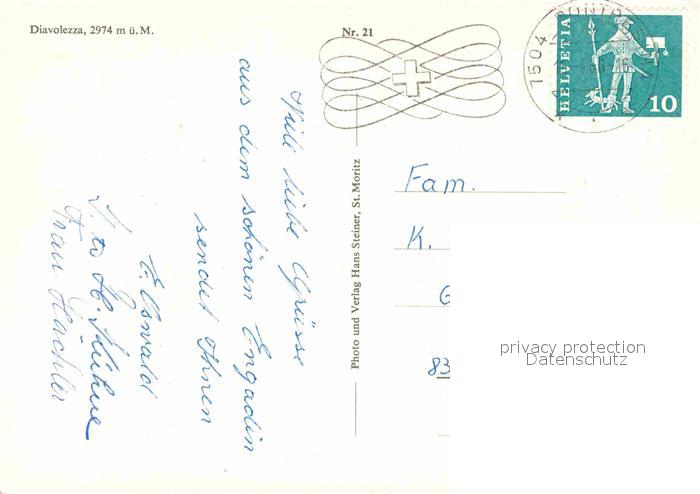 Diavolezza, 2974 m ü. M.
Nr. 21
7504 PONTRES
HELVETIA
10
Viele liebe Grüsse
aus dem schönen Engadin
sendet Ihnen
E. Oswald
Frau Hächler
Photo und Verlag Hans Steiner, St. Moritz
Fam.
K.
G
83
privacy protection
Datenschutz